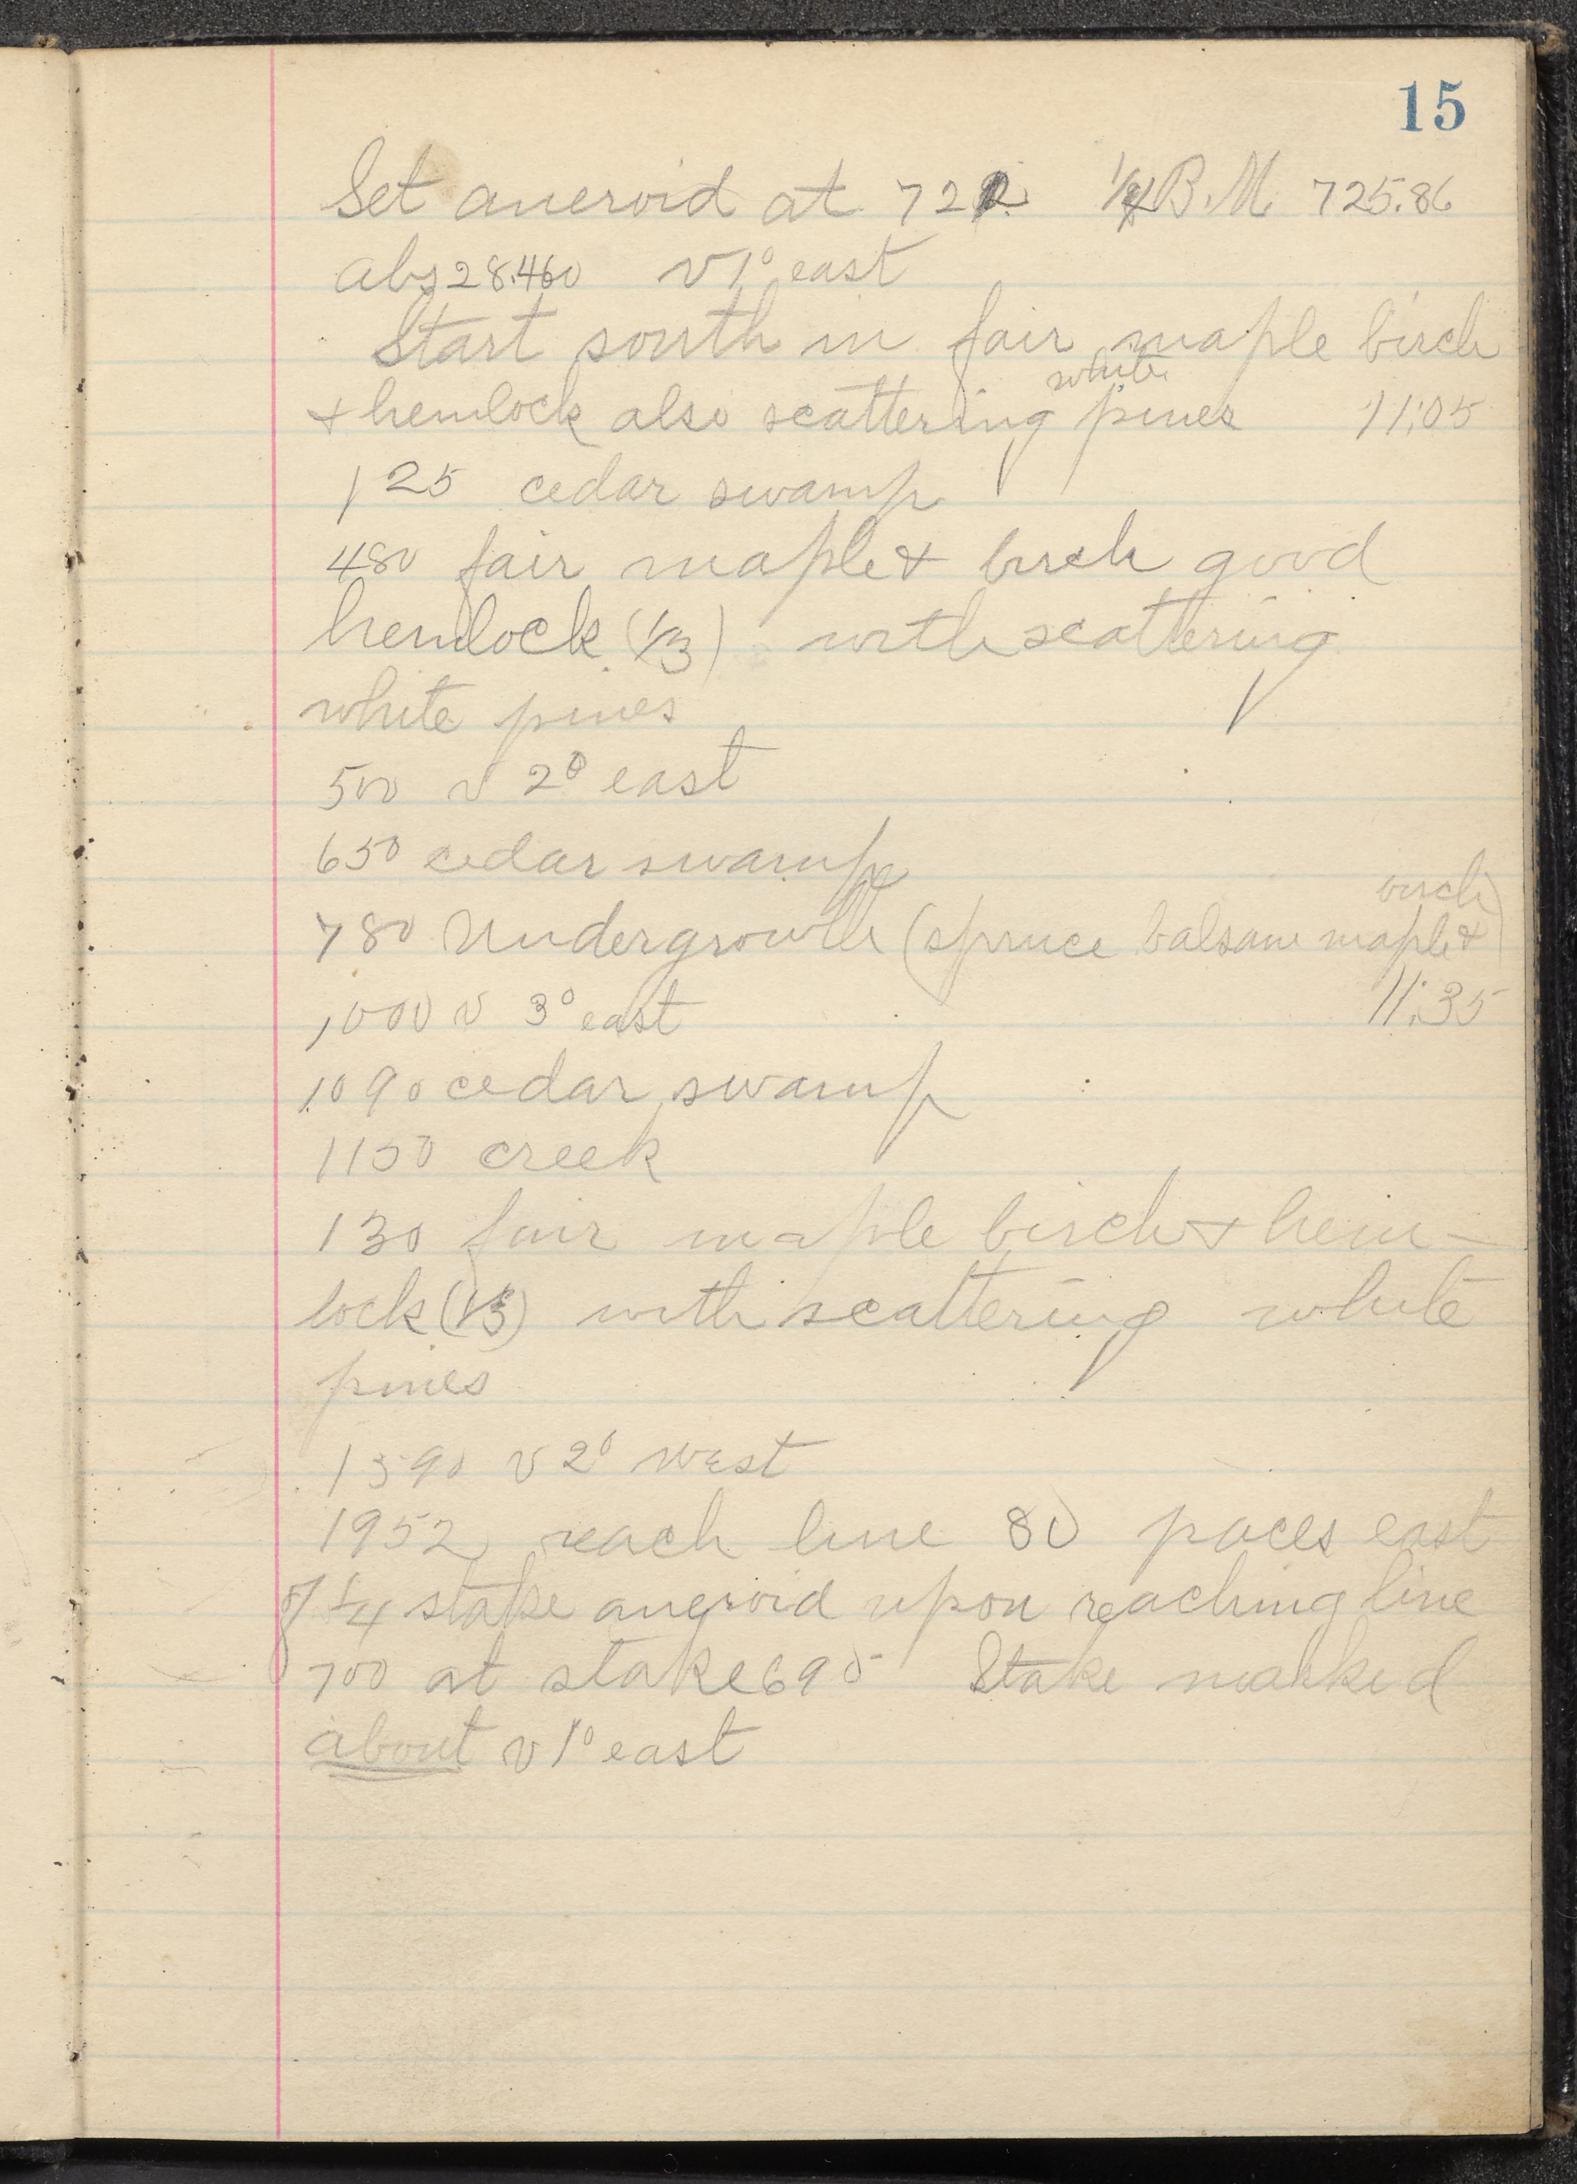 15
Set aneroid at 722 1/4 B.M. 725.86
abs 28.460 v 1° east
Start south in fair maple birch
white
+ hemlock also scattering pines 11:05
125 cedar swamp
480 fair maple + birch good
hemlock (1/3) with scattering
white pines
500 v 2° east
650 cedar swamp
birch)
780 Undergrowth (spruce balsam maple +
1000 v 3° east 11:35
1090 cedar swamp
1150 creek
130 fair maple birch + hem-
lock (1/3) with scattering white
pines
1590 v 2° west
1952 reach line 80 paces east
of 1/4 stake aneroid upon reaching line
700 at stake 695 Stake marked
about v 1° east